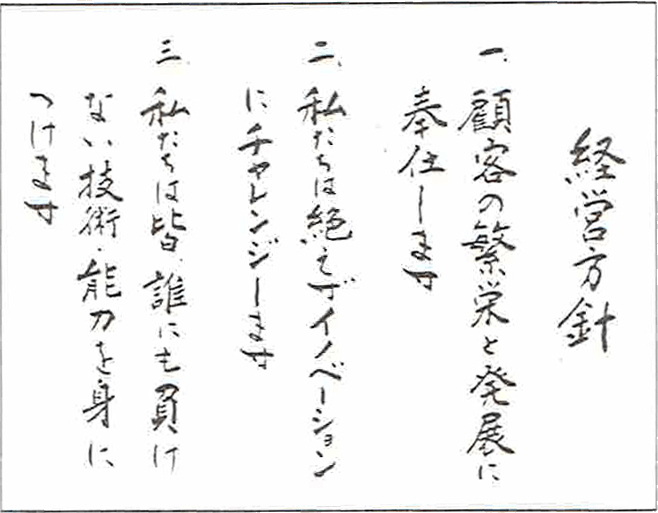 経営方針
一、顧客の繁栄と発展に
奉仕します
二、私たちは絶えずイノベーション
にチャレンジします
三、私たちは皆、誰にも負け
ない技術・能力を身に
つけます